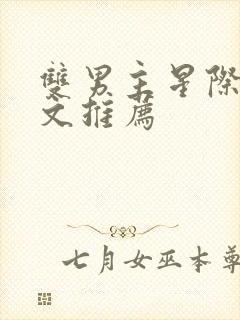 雙男主星際
文推薦
七月女巫本尊